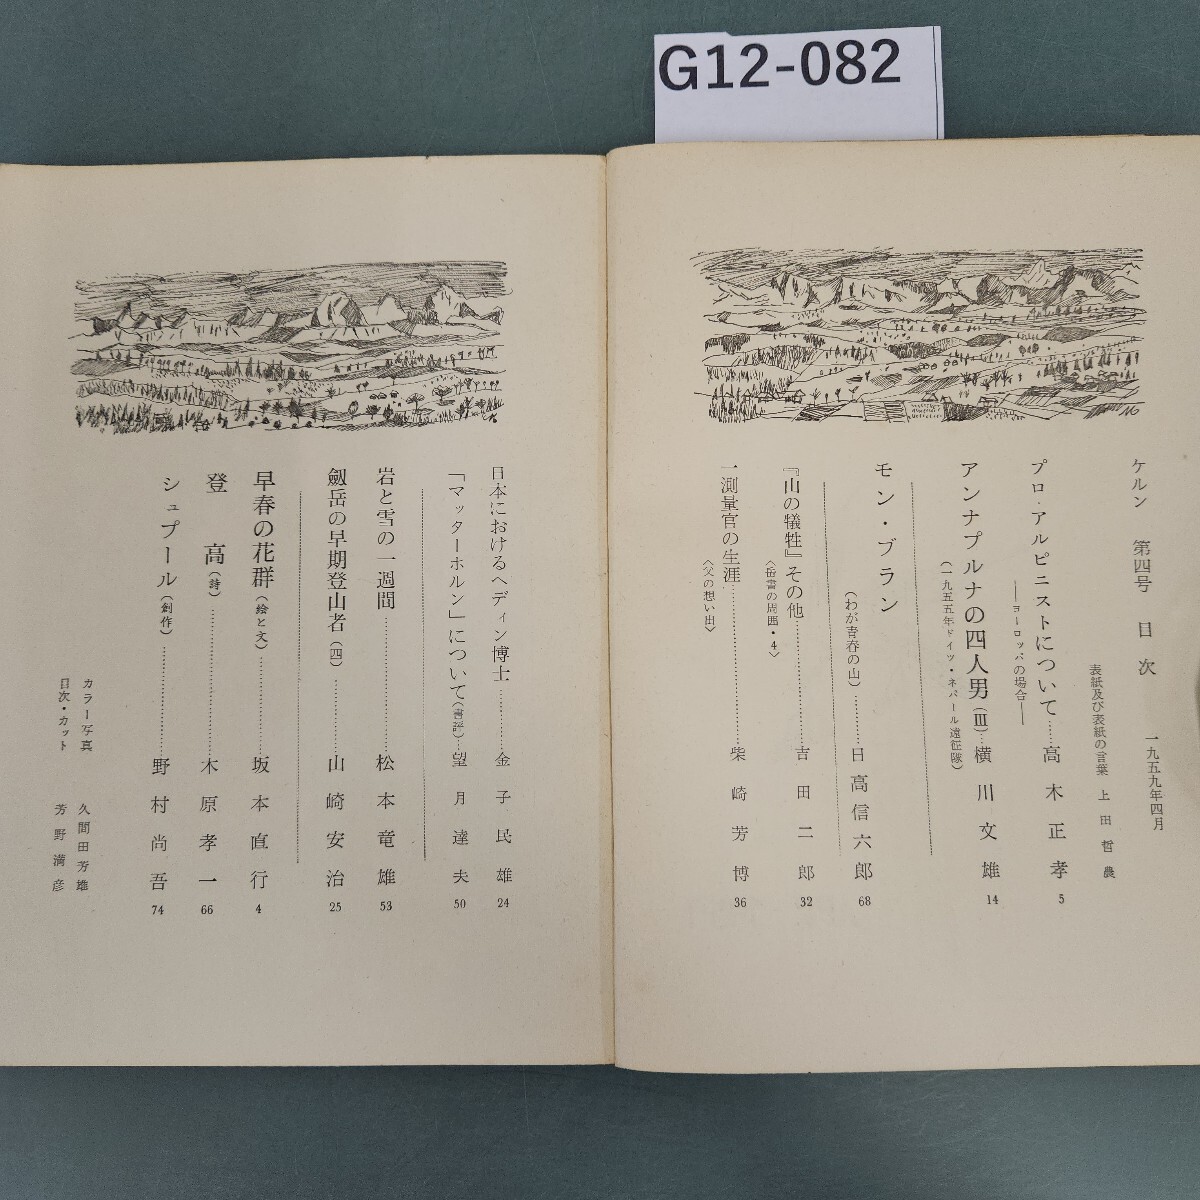 G12-082
ケルン 第四号 目次 一九五九年四月
表紙及び表紙の言葉 上田哲農
プロ・アルピニストについて……高木正孝 5
――ヨーロッパの場合――
アンナプルナの四人男(Ⅲ)…横川文雄 14
(一九五五年ドイツ・ネパール遠征隊)
モン・ブラン(わが青春の山)…………日高信六郎 68
『山の犠牲』その他…………………吉田二郎 32
〈岳書の周囲・4〉
一測量官の生涯…………………………柴崎芳博 36
〈父の想い出〉
日本におけるヘディン博士…………金子民雄 24
「マッターホルン」について(書評)…望月達夫 50
岩と雪の一週間…………………………松本竜雄 53
劔岳の早期登山者(四)……………山崎安治 25
早春の花群(絵と文)…………………坂本直行 4
登高(詩)…………………………木原孝一 66
シュプール(創作)…………………野村尚吾 74
カラー写真 久間田芳雄
目次・カット 芳野満彦